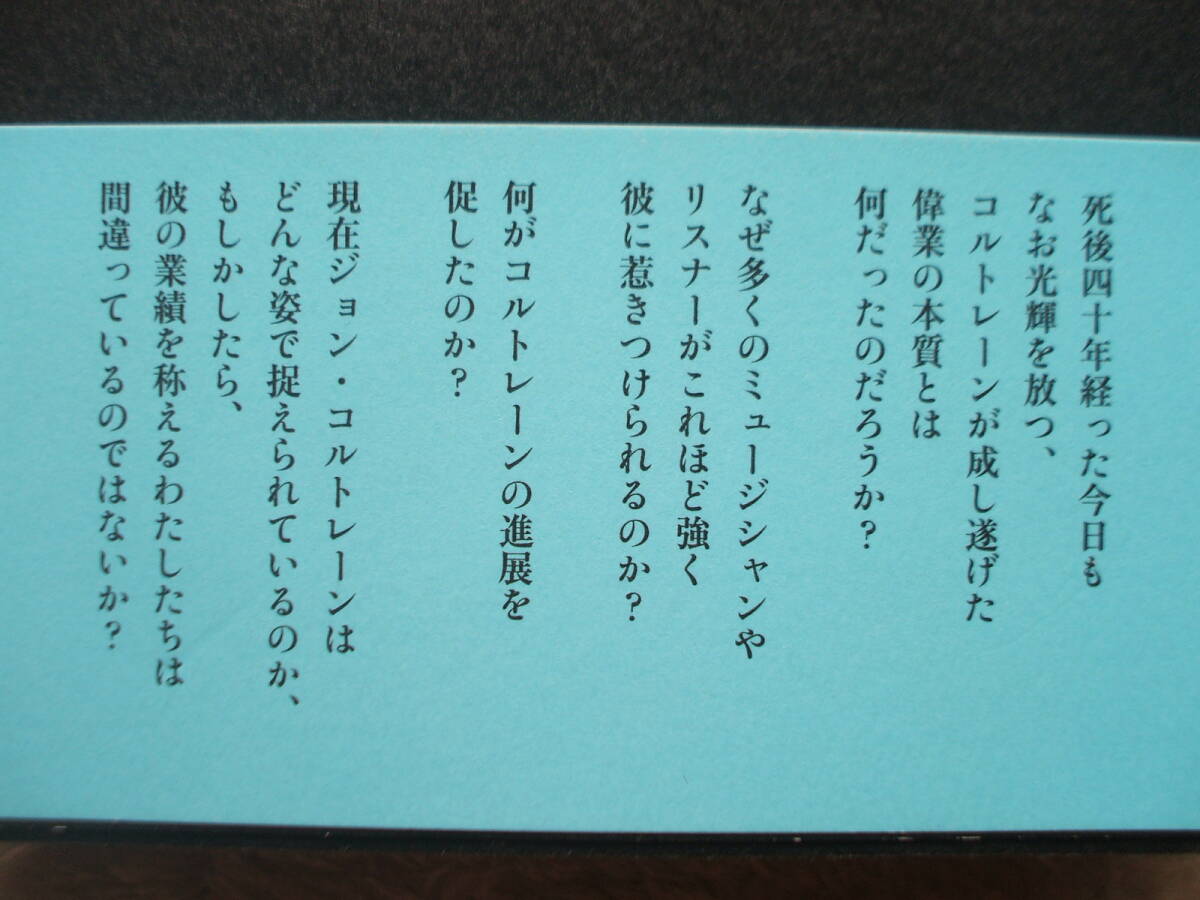 死後四十年経った今日も
なお光輝を放つ、
コルトレーンが成し遂げた
偉業の本質とは
何だったのだろうか？
なぜ多くのミュージシャンや
リスナーがこれほど強く
彼に惹きつけられるのか？
何がコルトレーンの進展を
促したのか？
現在ジョン・コルトレーンは
どんな姿で捉えられているのか、
もしかしたら、
彼の業績を称えるわたしたちは
間違っているのではないか？